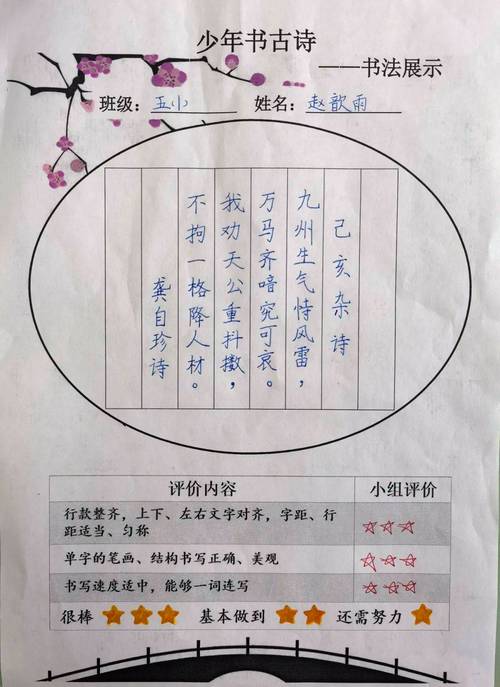 少年书古诗
——书法展示
班级：五小 姓名：赵歆雨
己亥杂诗
九州生气恃风雷，
万马齐喑究可哀。
我劝天公重抖擞，
不拘一格降人材。
龚自珍诗
评价内容 小组评价
行款整齐，上下、左右文字对齐，字距、行
距适当、匀称
单字的笔画、结构书写正确、美观
书写速度适中，能够一词连写
很棒 基本做到 还需努力